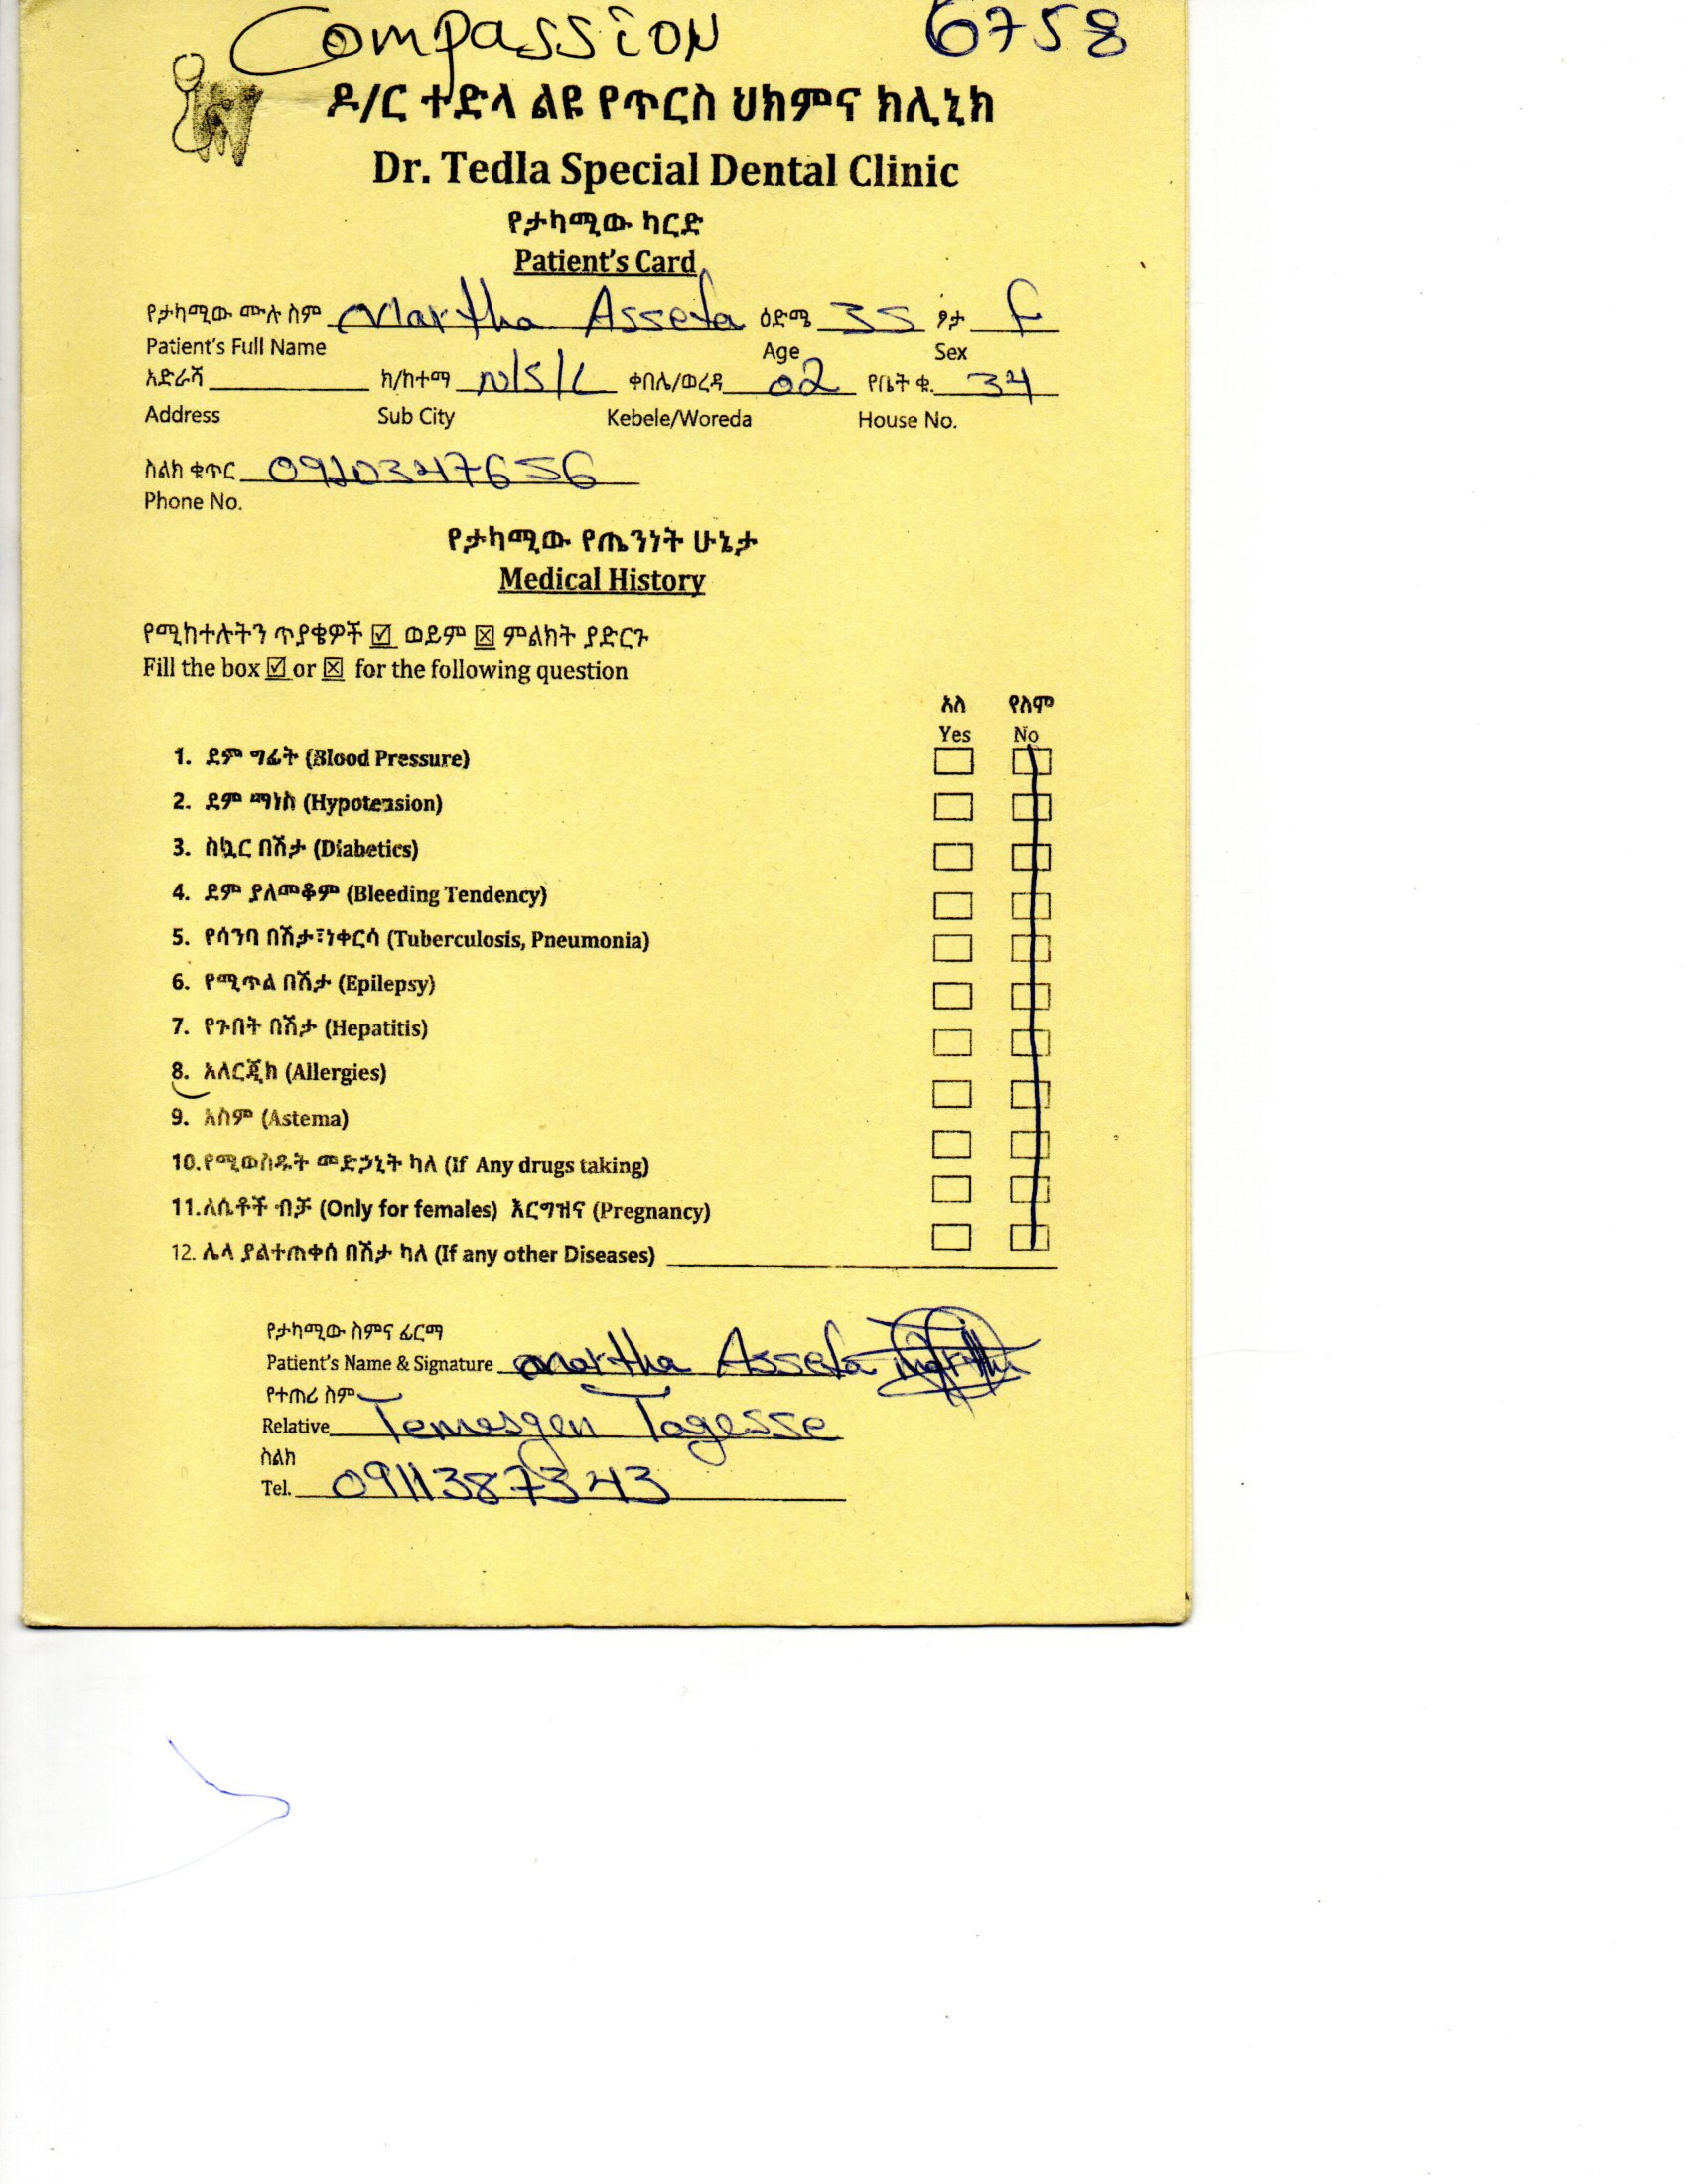 Compassion 6758
ዶ/ር ተድላ ልዩ የጥርስ ህክምና ክሊኒክ
Dr. Tedla Special Dental Clinic
የታካሚው ካርድ
Patient's Card
የታካሚው ሙሉ ስም Martha Assefa ዕድሜ 35 ፆታ F
Patient's Full Name Age Sex
አድራሻ ክ/ከተማ N/S/L ቀበሌ/ወረዳ 02 የቤት ቁ. 34
Address Sub City Kebele/Woreda House No.
ስልክ ቁጥር 0920347656
Phone No.
የታካሚው የጤንነት ሁኔታ
Medical History
የሚከተሉትን ጥያቄዎች ☑ ወይም ☒ ምልክት ያድርጉ
Fill the box ☑ or ☒ for the following question
አለ የለም
Yes No
1. ደም ግፊት (Blood Pressure)
2. ደም ማነስ (Hypotension)
3. ስኳር በሽታ (Diabetics)
4. ደም ያለመቆም (Bleeding Tendency)
5. የሳንባ በሽታ፣ነቀርሳ (Tuberculosis, Pneumonia)
6. የሚጥል በሽታ (Epilepsy)
7. የጉበት በሽታ (Hepatitis)
8. አለርጂክ (Allergies)
9. አስም (Astema)
10.የሚወስዱት መድኃኒት ካለ (If Any drugs taking)
11.ለሴቶች ብቻ (Only for females) እርግዝና (Pregnancy)
12. ሌላ ያልተጠቀሰ በሽታ ካለ (If any other Diseases)
የታካሚው ስምና ፊርማ
Patient's Name & Signature Martha Assefa
የተጠሪ ስም
Relative Temesgen Tagesse
ስልክ
Tel. 0911387343